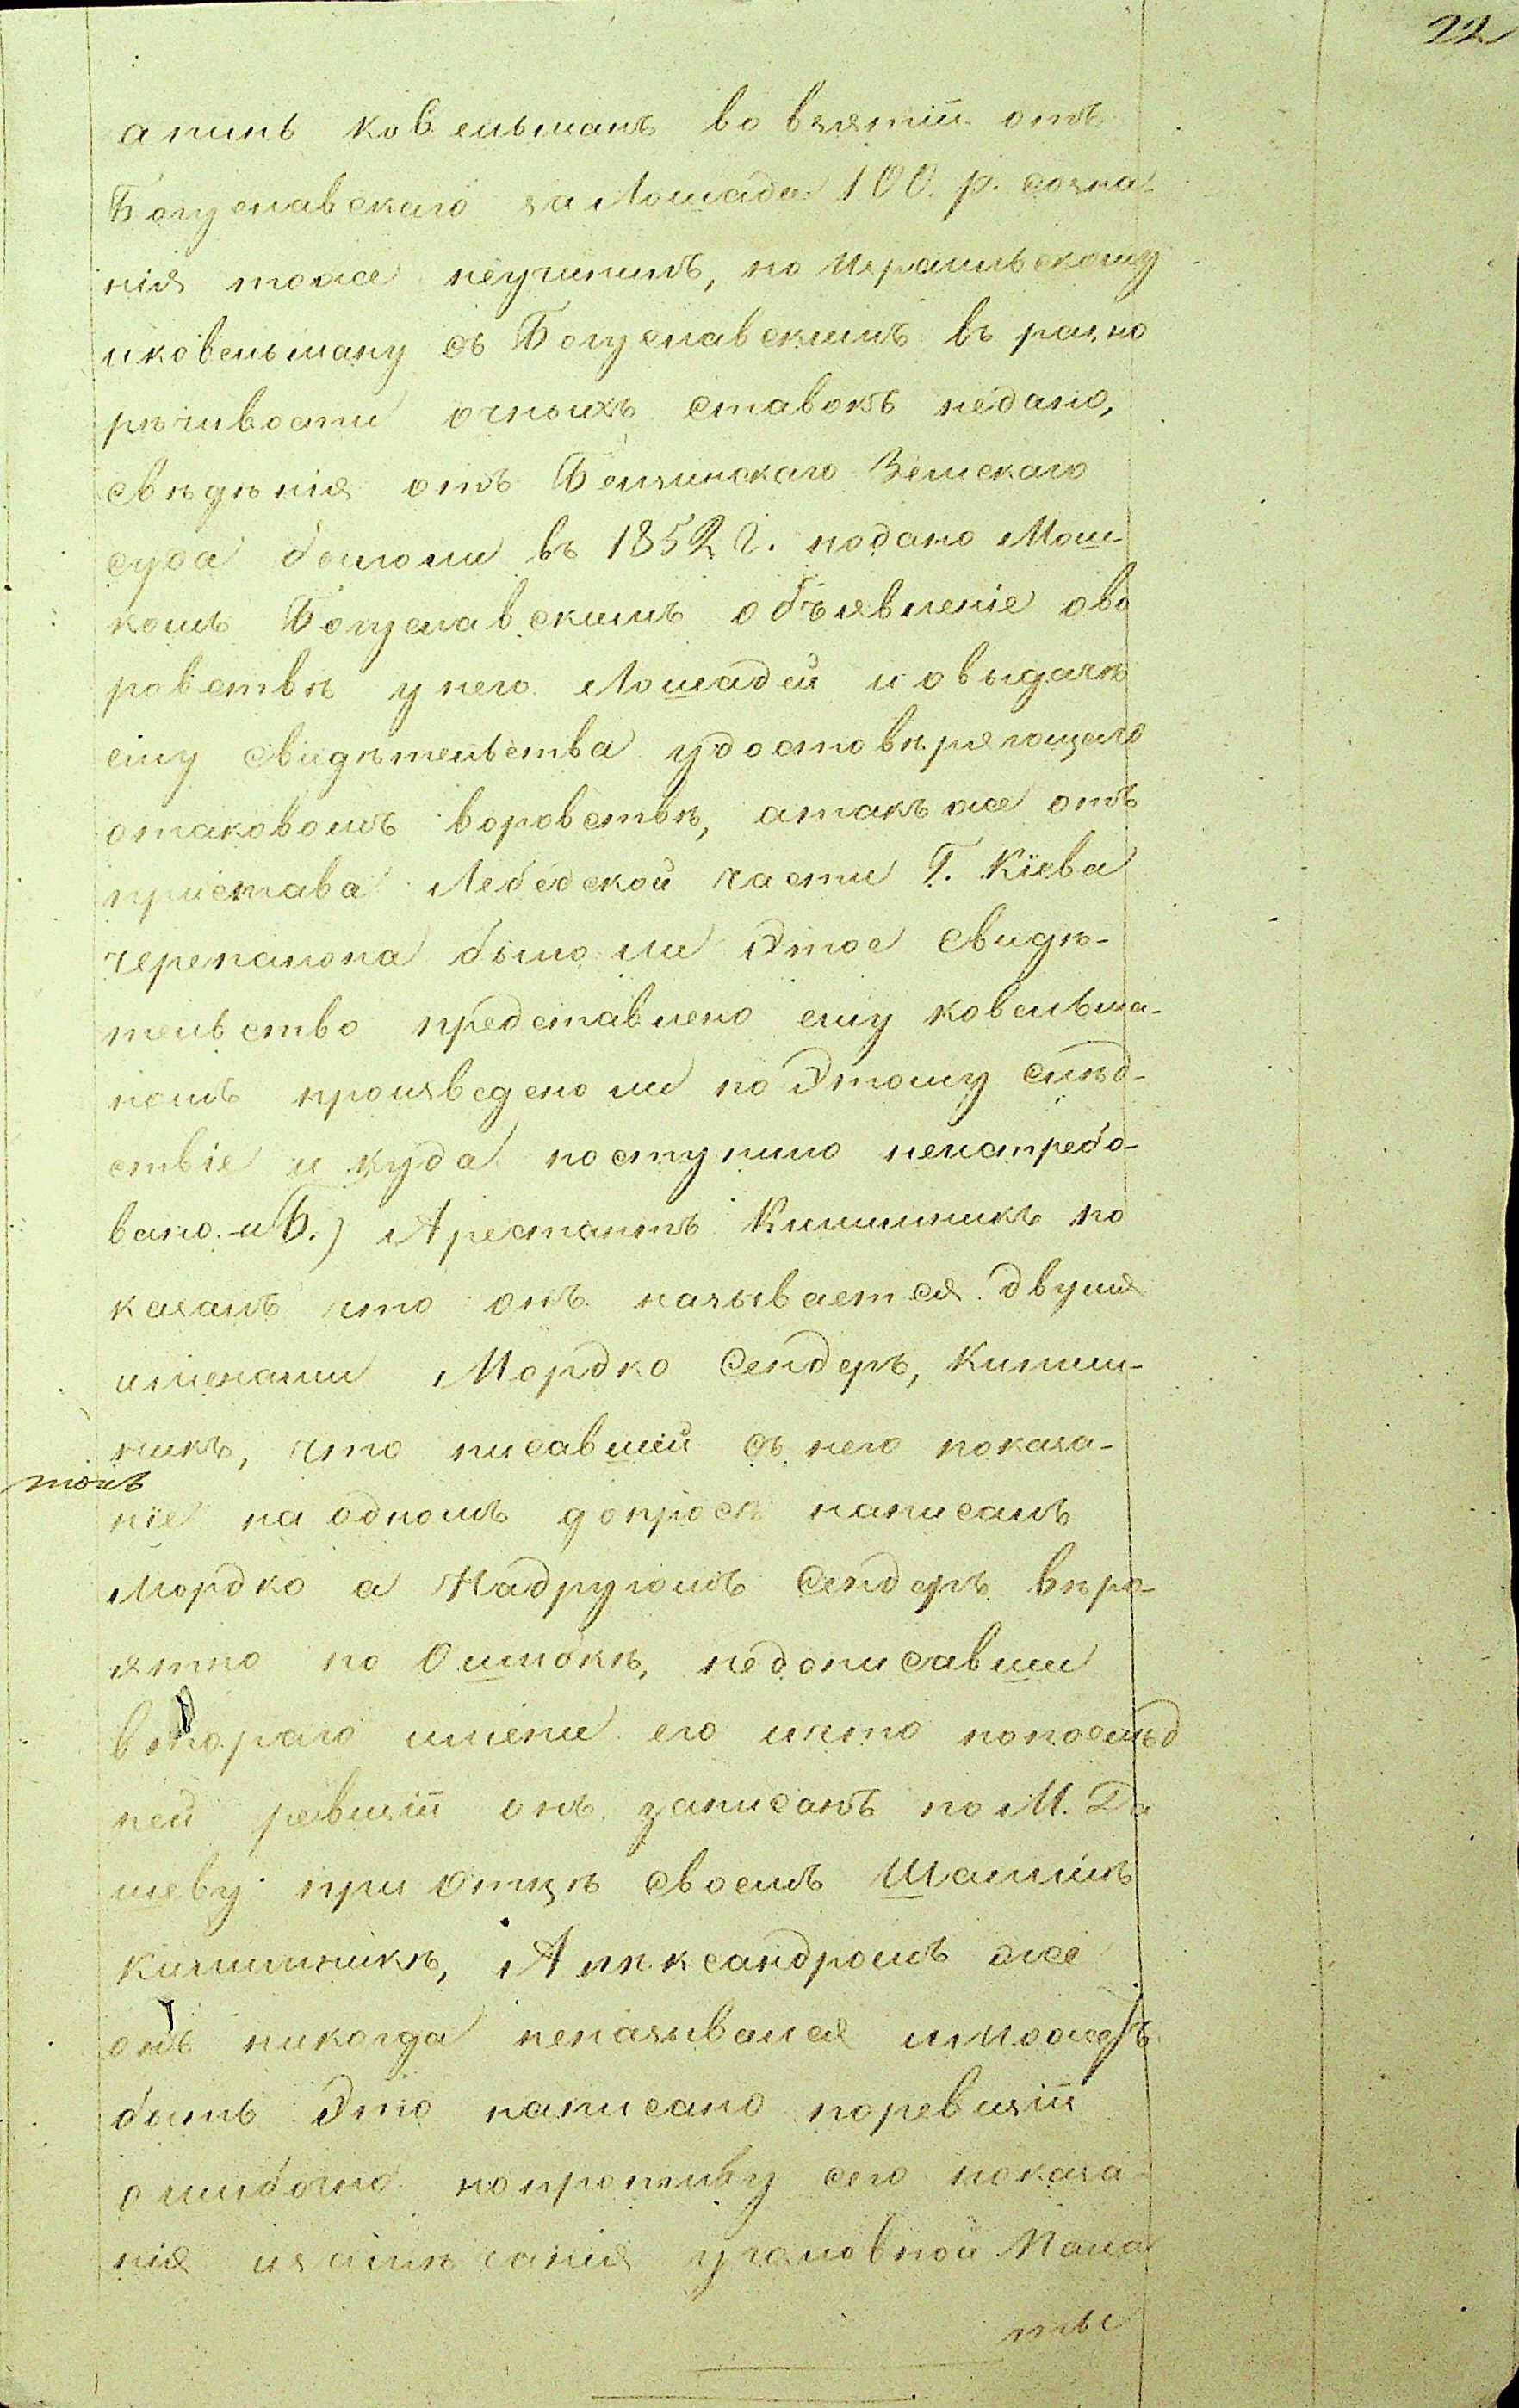 22
а нинѣ ковельманъ во взятіи отъ
Богуславскаго за Лошада 100. р. созна
нія тоже неучинилъ, но Израильскому
иковельману съ Богуславскимъ въ разно
рѣчивости очныхъ ставокъ недано,
свѣдѣнія отъ Земскаго
суда былоли въ 1852 г. подано Мош-
комъ Богуславскимъ объявленіе ово
ровствѣ унего Лошадей и овыдачѣ
ему свидѣтельства удостовѣряющаго
отаковомъ воровствѣ, атакъже отъ
пристава Лебедской части Г. Кіева
черепанова было ли Этое свидѣ-
тельство представлено ему ковельма-
номъ произведено ли поЭтому слѣд-
ствіе и куда поступило неистребо-
вано. - и Б.) Арестантъ Кишиникъ по
казалъ что онъ называется двумя
именами Мордко Сендеръ, Кишин-
никъ, что писавшій съ него показа-
ніе на одномъ допросѣ написалъ
Мордко а Надругомъ Сендеръ вѣро-
ятно по Ошибкѣ, недописавши
втораго имени его ичто попослѣд
ней ревизіи онъ записанъ по М. Да
шеву при Отцѣ своемъ
Кишиникѣ, Алѣксандромъ же
онъ никогда неназывался иможетъ
быть Это написано поревизіи
ошибочно попротиву сего показа-
нія изамѣчанія уголовной Пала
ты